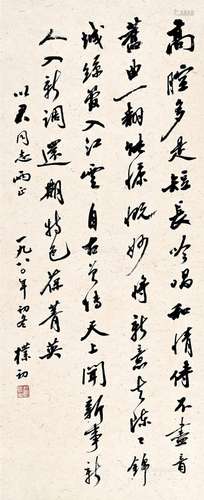 高腔多是短長吟唱和情傳不盡音
舊曲一翻妙將新意去陳錦
城絲管入江雲自古曾傳天上聞新事新
人入新調還期特色葆菁英
以君同志两正 一九八〇年初冬 樸初